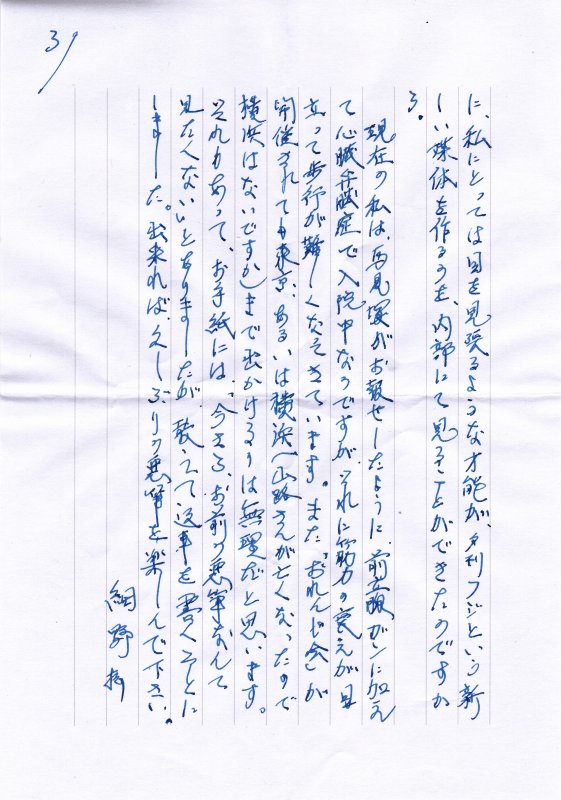 3
に、私にとっては目を見張るような才能が、夕刊フジという新
しい媒体を作るのを、内部にて見ることができたのですか
ら。
現在の私は、馬見塚がお報せしたように、前立腺ガンに加え
て心臓弁膜症で入院中なのですが、それに筋力の衰えが目
立って歩行が難しくなってきています。また、"おれんじ会"が
開催されても東京、あるいは横浜(山路さんが亡くなったので
横浜はないですか)まで出かけるのは無理だと思います。
それもあって、お手紙には、"今さら、お前の悪筆なんて
見たくない"とありましたが、敢えて返事を書くことに
しました。出来れば、久しぶりの悪筆を楽しんで下さい。
細野